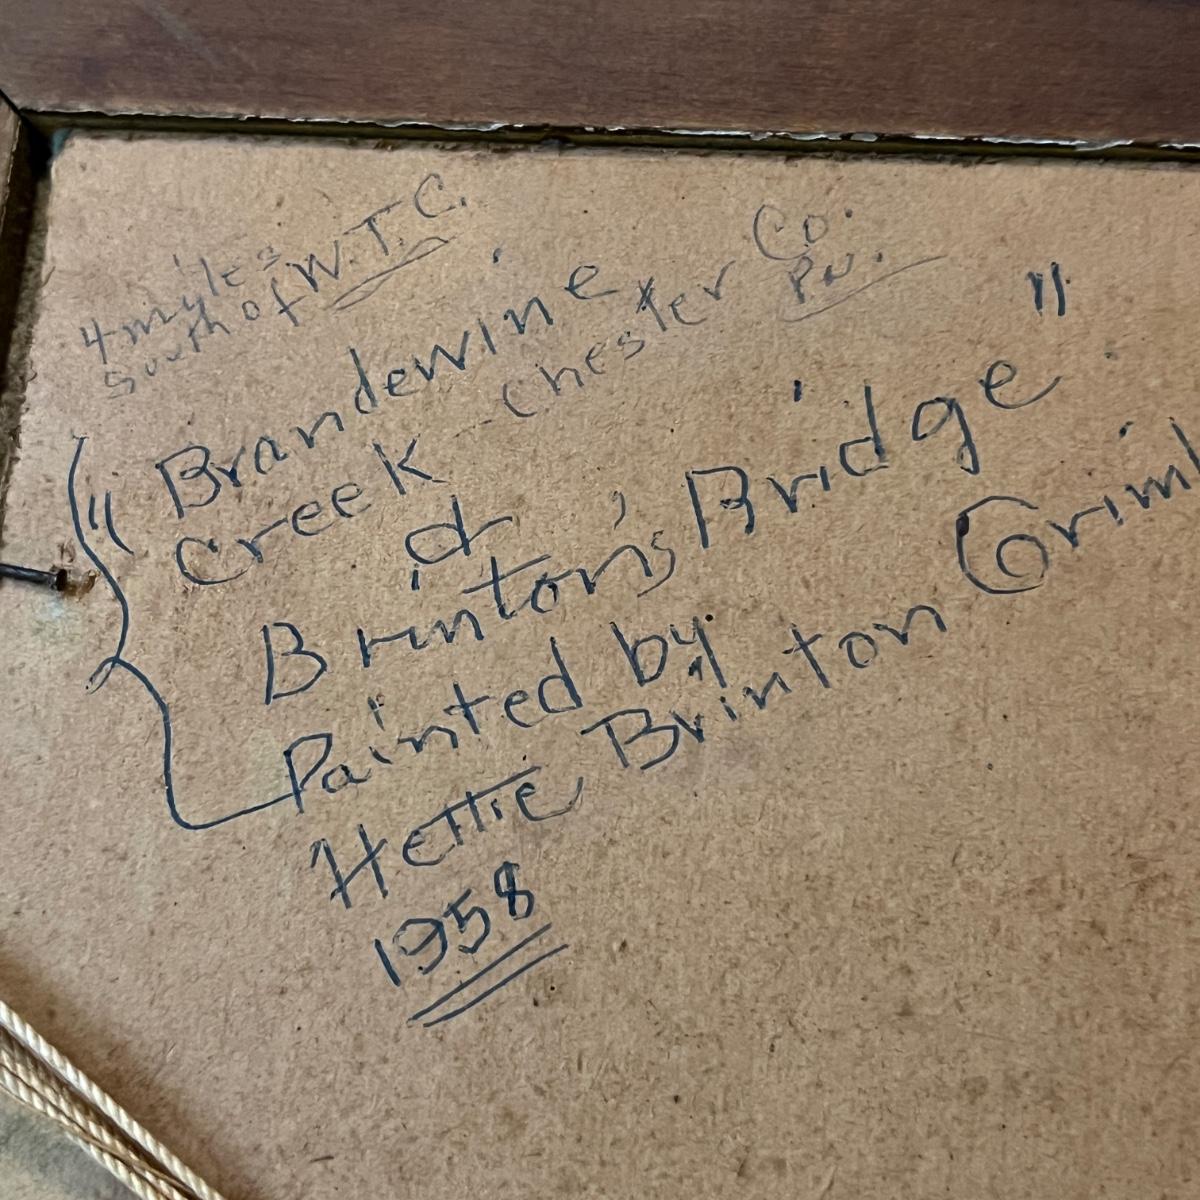 4 myles
south of W.T.C.
"Brandewine
Creek - Chester Co.
Pa.
&
Brinton's Bridge"
Painted by
Hettie Brinton
1958